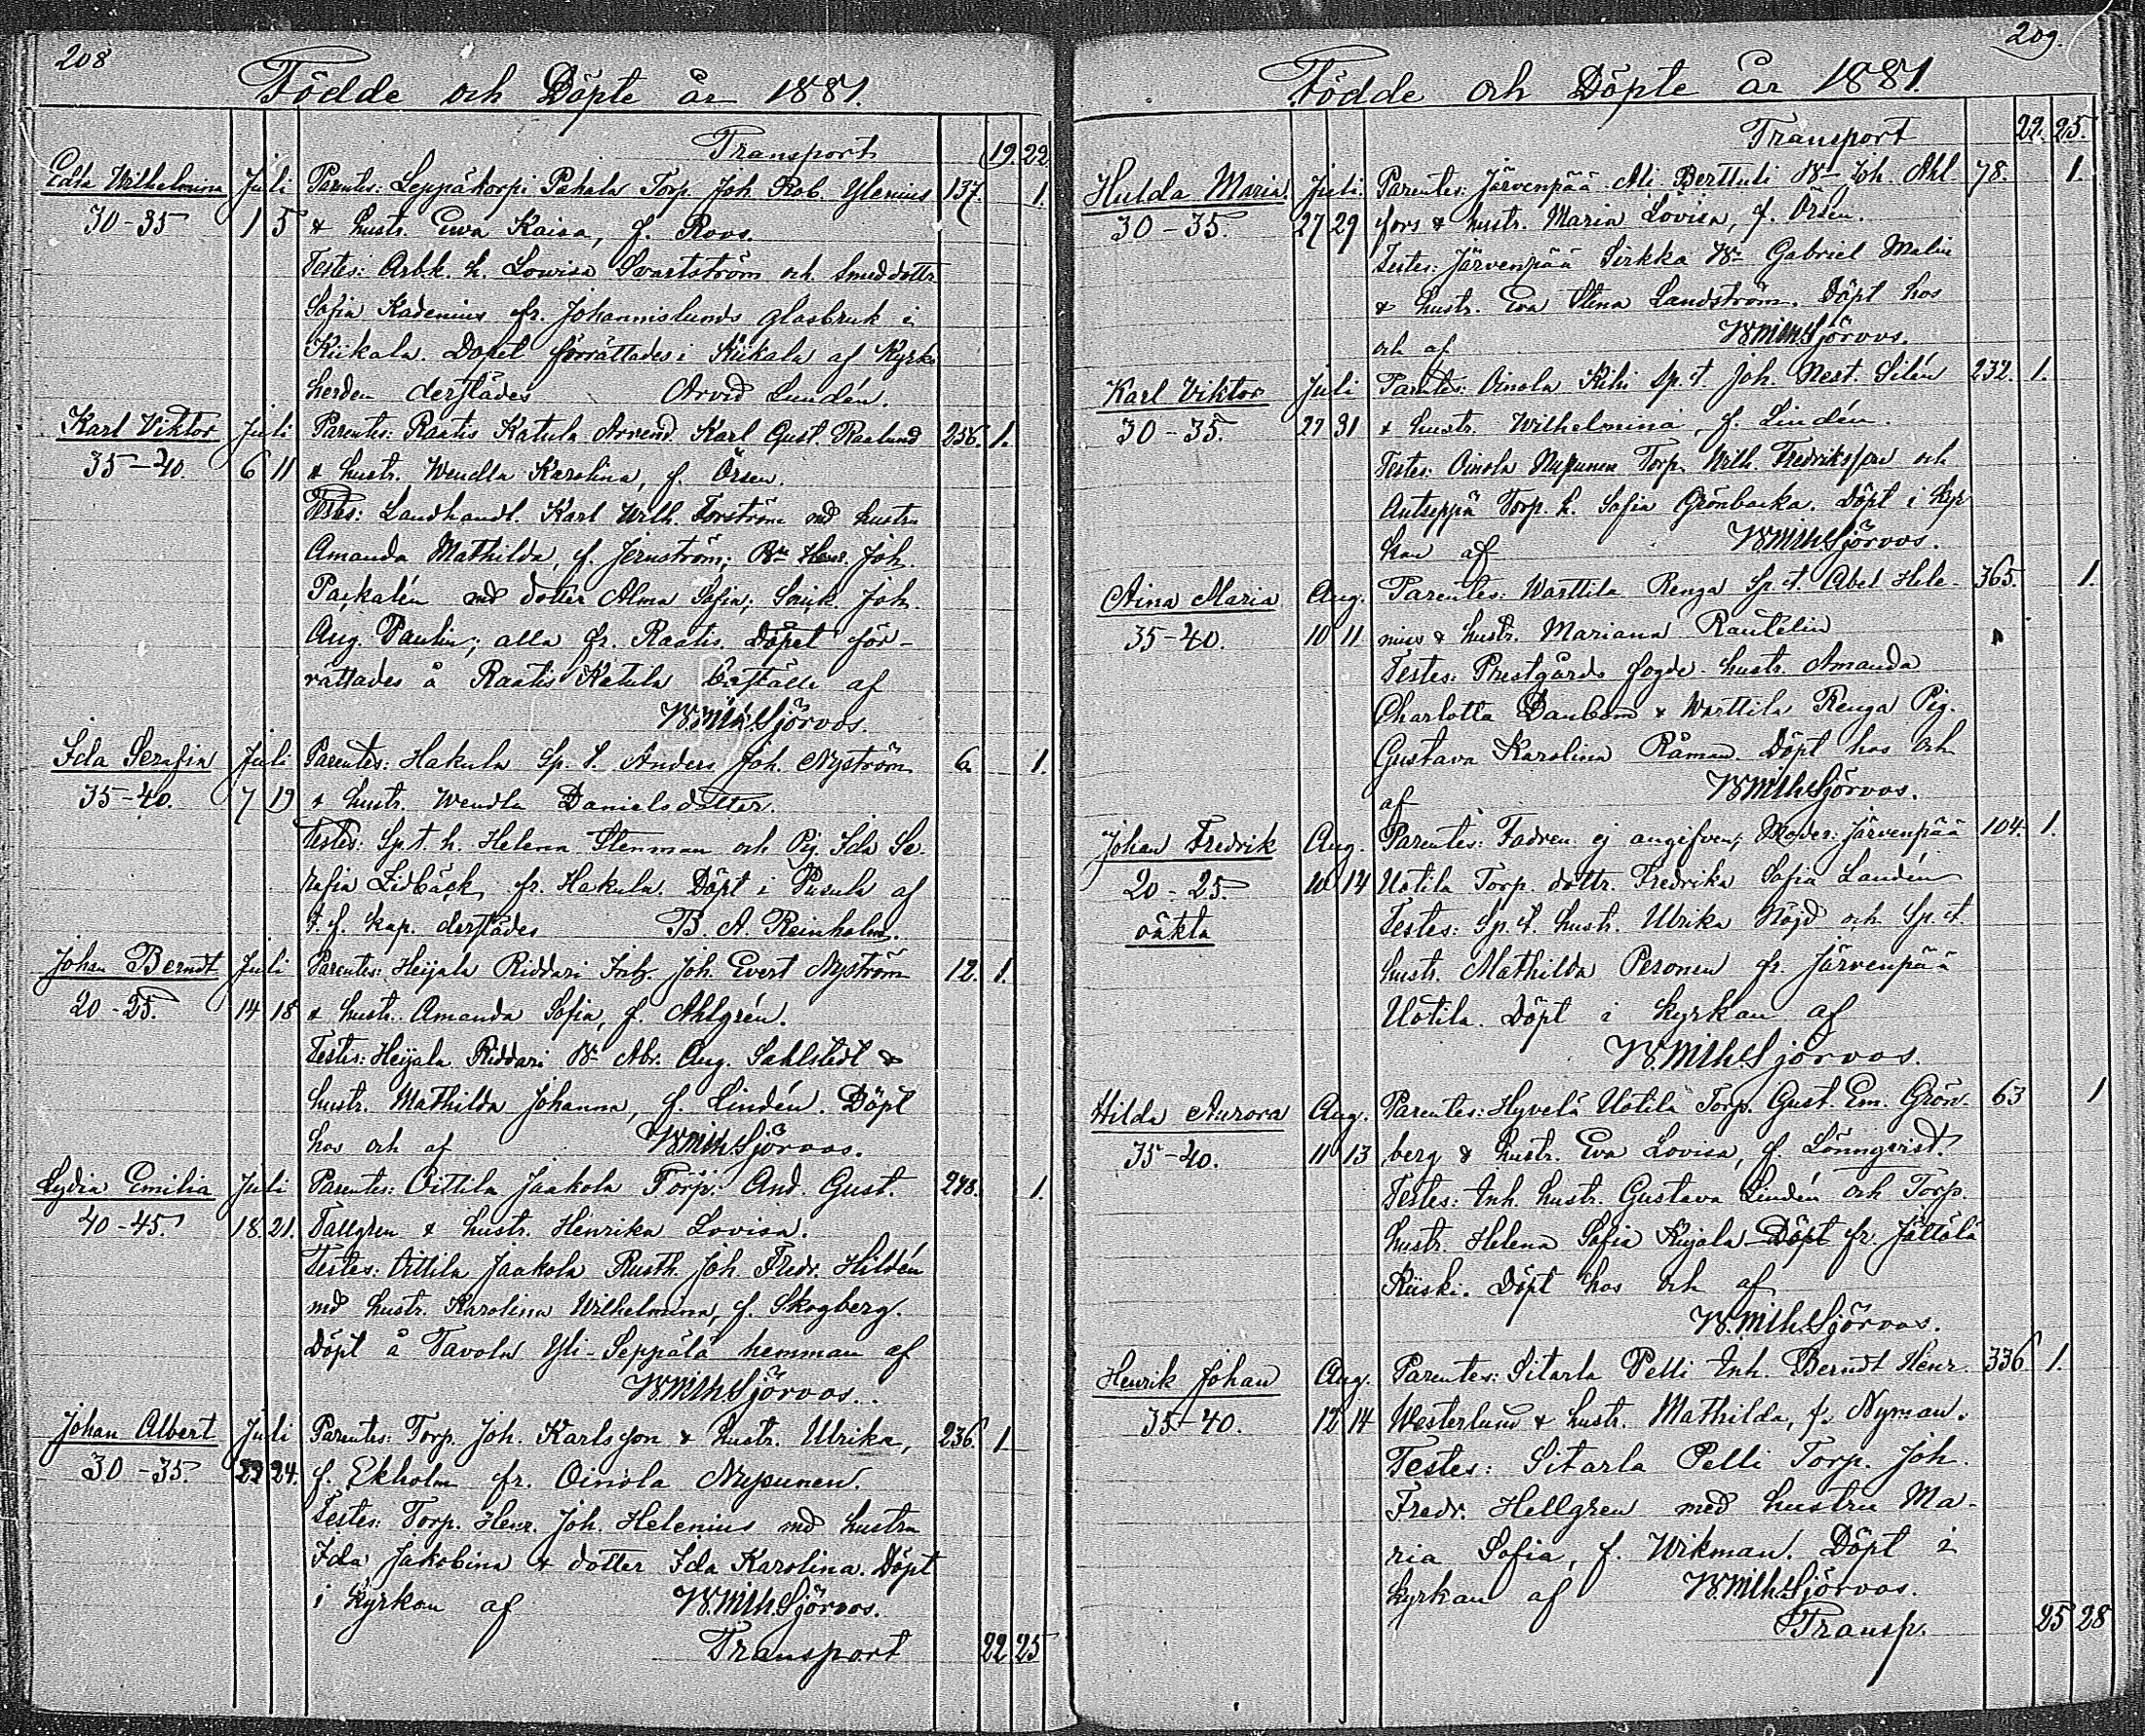 208
Födde och Döpte år 1881.
Transport 19. 22
Edla Wilhelmina Juli Parentes: Leppäkorpi Pahala Torp. Joh. Rob. Ylenius 137. 1.
30-35 1 5 & hustr. Ewa Kaisa, f. Roos.
Testes: Arb.k. h. Lowisa Svartström och Smeddottr.
Sofia Kadenius fr. Johannislunds glasbruk i
Kiikala. Dopet förrättades i Kiikala af Kyrko
herden derstädes Arvid Lundén.
Karl Viktor Juli Parentes: Raatis Katula Arrend. Karl Gust. Raalund 256. 1.
35-40. 6 11 & hustr. Wendla Karolina, f. Örsen.
Testes: Landhandl. Karl Wilh. Forström md hustru
Amanda Mathilda, f. Jernström; Bn Henr. Joh.
Packalén md dotter Alma Sofia; Snick. Joh.
Aug. Paulin; alla fr. Raatis. Döpet för-
rättades å Raatis Katula af
W. Wilh. Sjöroos.
Ida Serafia Juli Parentes: Hakula Sp. t. Anders Joh. Nyström 6. 1.
35-40. 7 19 & hustr. Wendla Danielsdotter.
Testes: Sp.t. h. Helena Stenman och Pig. Ida Se-
rafia Lidbäck fr. Hakula. Döpt i Pusula af
t. f. kap. derstädes B. A. Reinholm.
Johan Berndt Juli Parentes: Heijala Riddari Joh. Evert Nyström 12. 1.
20-25. 14 18 & hustr. Amanda Sofia, f. Ahlgrén.
Testes: Heijala Riddari Bn Abr. Aug. Sahlstedt &
hustr. Mathilda Johanna, f. Lindén. Döpt
hos och af W. Wilh. Sjöroos.
Lydia Emilia Juli Parentes: Oittila Jaakola Torp. And. Gust. 248. 1.
40-45. 18. 21. Tallgren & hustr. Henrika Lovisa.
Testes: Oittila Jaakola Rusth. Joh. Fredr. Hildén
md hustr. Karolina Wilhelmina, f. Skogberg.
Döpt å Tavola Yli-Seppälä hemman af
W. Wilh. Sjöroos.
Johan Albert Juli Parentes: Torp. Joh. Karlsson & hustr. Ulrika, 236. 1
30-35. 22 24. f. Ekholm fr. Oinola Nupunen.
Testes: Torp. Henr. Joh. Helenius md hustru
Ida Jakobina & dotter Ida Karolina. Döpt
i Kyrkan af W. Wilh. Sjöroos.
Transport 22 25
209.
Födde och Döpte år 1881.
Transport 22. 25.
Hulda Maria. Juli. Parentes: Järvenpää Ali Berttuli Bn Joh. Ahl 78. 1.
30-35. 27 29 fors & hustr. Maria Lovisa, f. Örsen.
Testes: Järvenpää Sirkka Bn Gabriel Malin
& hustr. Eva Stina Landström. Döpt hos
och af W. Wilh. Sjöroos.
Karl Viktor Juli Parentes: Oinola Kihi Sp. t. Joh. Nest. Silén 232. 1.
30-35. 27 31 & hustr. Wilhelmina, f. Lindén.
Testes: Oinola Nupunen Torp. Wilh. Fredriksson och
Antseppä Torp. h. Sofia Grönbacka. Döpt i Kyr
kan af W. Wilh. Sjöroos.
Aina Maria Aug. Parentes: Warttila Renga Sp. t. Abel Hele- 365. 1.
35-40. 10 11 nius & hustr. Mariana Rautelin
Testes: Prestgårds fogde hustr. Amanda
Charlotta Danbom & Warttila Renga Pig.
Gustava Karolina Råman. Döpt hos och
af W. Wilh. Sjöroos.
Johan Fredrik Aug. Parentes: Fadren ej angifven; Moder: Järvenpää 104. 1.
20-25. 10 14 Uotila Torp. dottr. Fredrika Sofia Landén
oäkta Testes: Sp. t. hustr. Ulrika Nöjd och Sp. t.
hustr. Mathilda Personen fr. Järvenpää
Uotila. Döpt i Kyrkan af
W. Wilh. Sjöroos.
Hilda Aurora Aug. Parentes: Hyvelä Uotila Torp. Gust. Em. Grön- 63 1
35-40. 11 13 berg & hustr. Eva Lovisa, f. Lönnqvist.
Testes: Inh. hustr. Gustava Lindén och Torp.
hustr. Helena Sofia Kujala Döpt fr. Jättölä
Kiiski. Döpt hos och af
W. Wilh. Sjöroos.
Henrik Johan Aug. Parentes: Sitarla Pelli Inh. Berndt Henr 336 1.
35-40. 12 14 Westerlund & hustr. Mathilda, f. Nyman.
Testes: Sitarla Pelli Torp. Joh.
Fredr. Hellgren med hustru Ma-
ria Sofia, f. Wikman. Döpt i
kyrkan af W. Wilh. Sjöroos.
Transp. 25 28